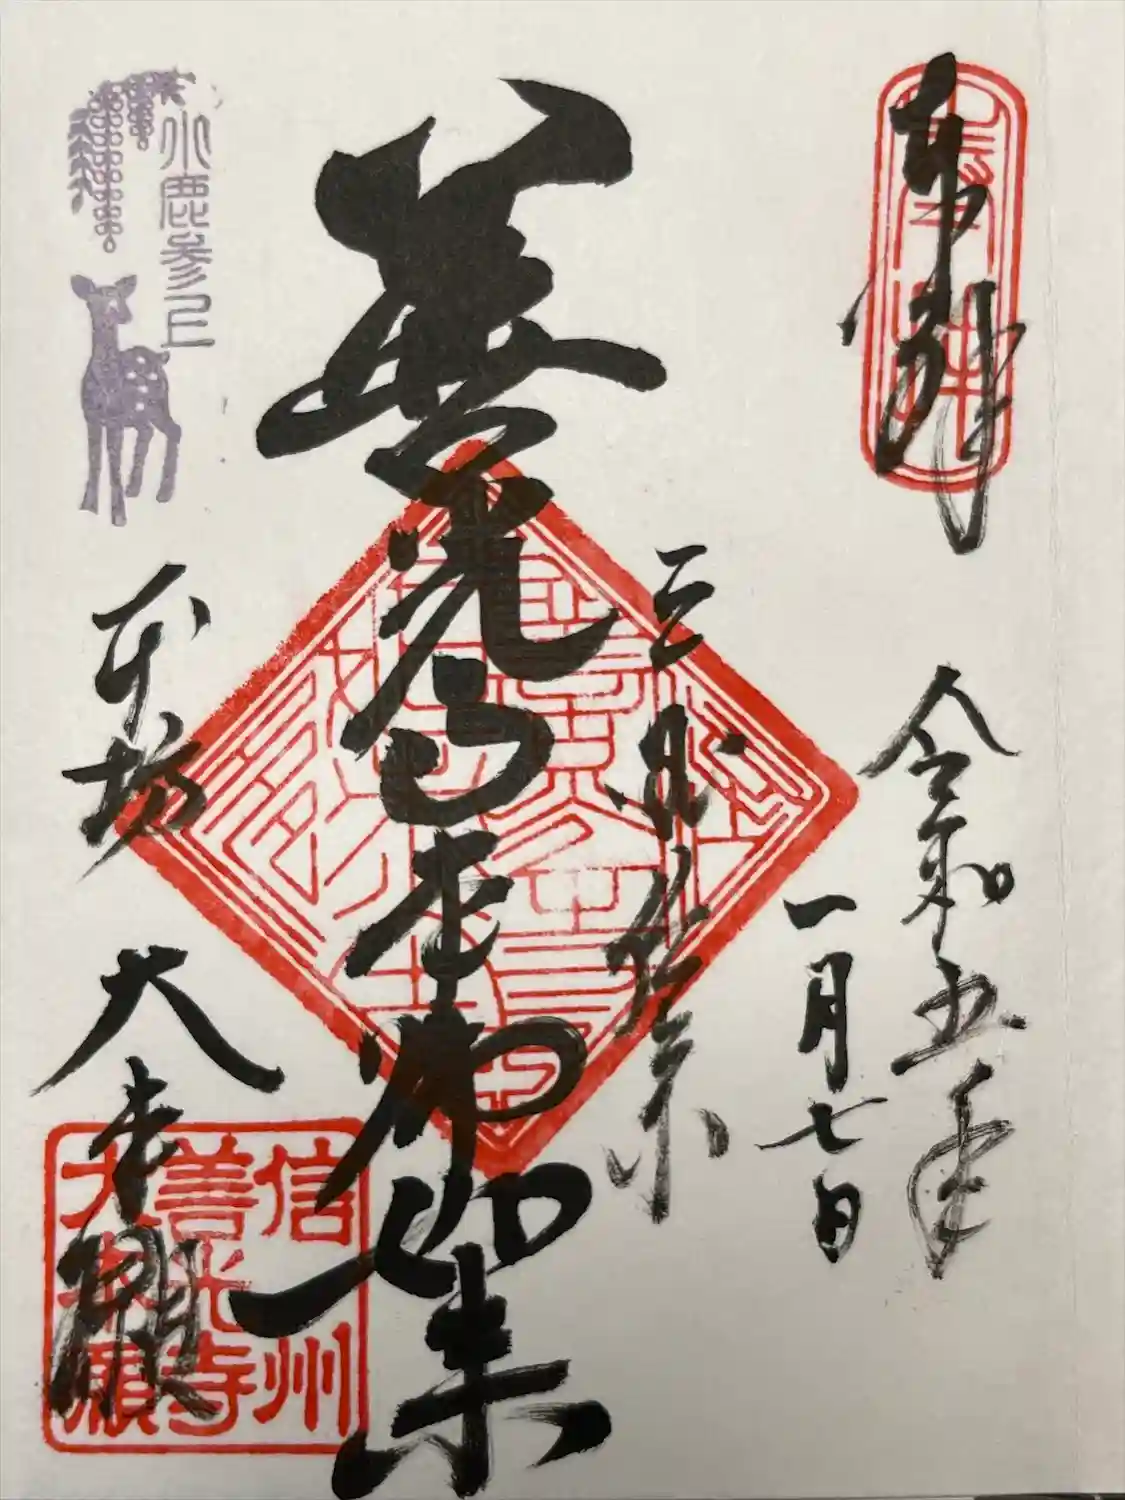 奉拝
令和五年
一月七日
三国伝来
善光寺本師如来
小鹿参上
本坊 大本願
信州
善光寺
大本願